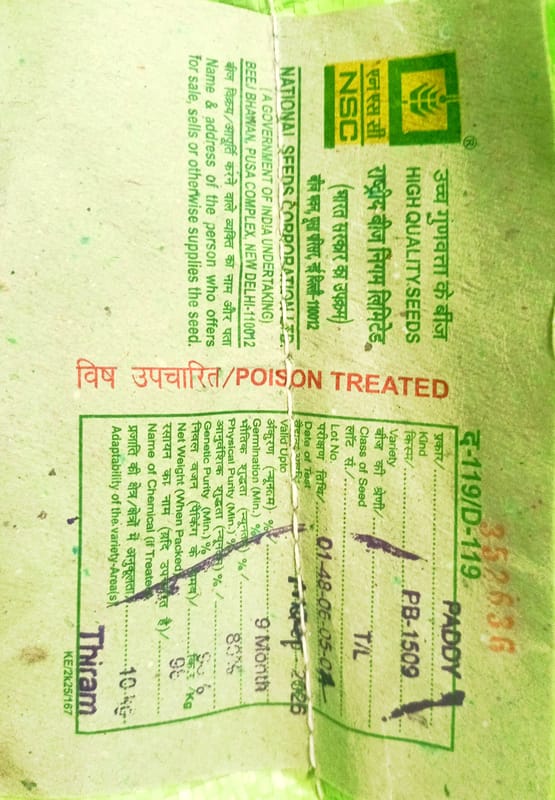 एन एस सी
NSC
®
उच्च गुणवत्ता के बीज
HIGH QUALITY SEEDS
राष्ट्रीय बीज निगम लिमिटेड
(भारत सरकार का उपक्रम)
बीज भवन, पूसा परिसर, नई दिल्ली-110012
NATIONAL SEEDS CORPORATION LTD.
(A GOVERNMENT OF INDIA UNDERTAKING)
BEEJ BHAWAN, PUSA COMPLEX, NEW DELHI-110012
बीज विक्रय/आपूर्ति करने वाले व्यक्ति का नाम और पता
Name & address of the person who offers
for sale, sells or otherwise supplies the seed.
विष उपचारित/POISON TREATED
352636
द-119/D-119
प्रकार/
Kind PADDY
किस्म/
Variety PB-1509
बीज की श्रेणी/
Class of Seed T/L
लॉट सं./
Lot No. 01-48-06-05-01
परीक्षण तिथि/
Date of Test
Valid Upto 2026
अंकुरण (न्यूनतम) %/
Germination (Min.) % 9 Month
भौतिक शुद्धता (न्यूनतम) %/
Physical Purity (Min.) % 80%
आनुवंशिक शुद्धता (न्यूनतम) %/
Genetic Purity (Min.) %
निवल वजन (पैकिंग के समय)/
Net Weight (When Packed) Kg 98
रसायन का नाम (यदि उपचारित है)/
Name of Chemical (If Treated)
प्रजाति की क्षेत्र/क्षेत्रों में अनुकूलता
Adaptability of the variety-Area(s) Thiram
KE/2k25/167